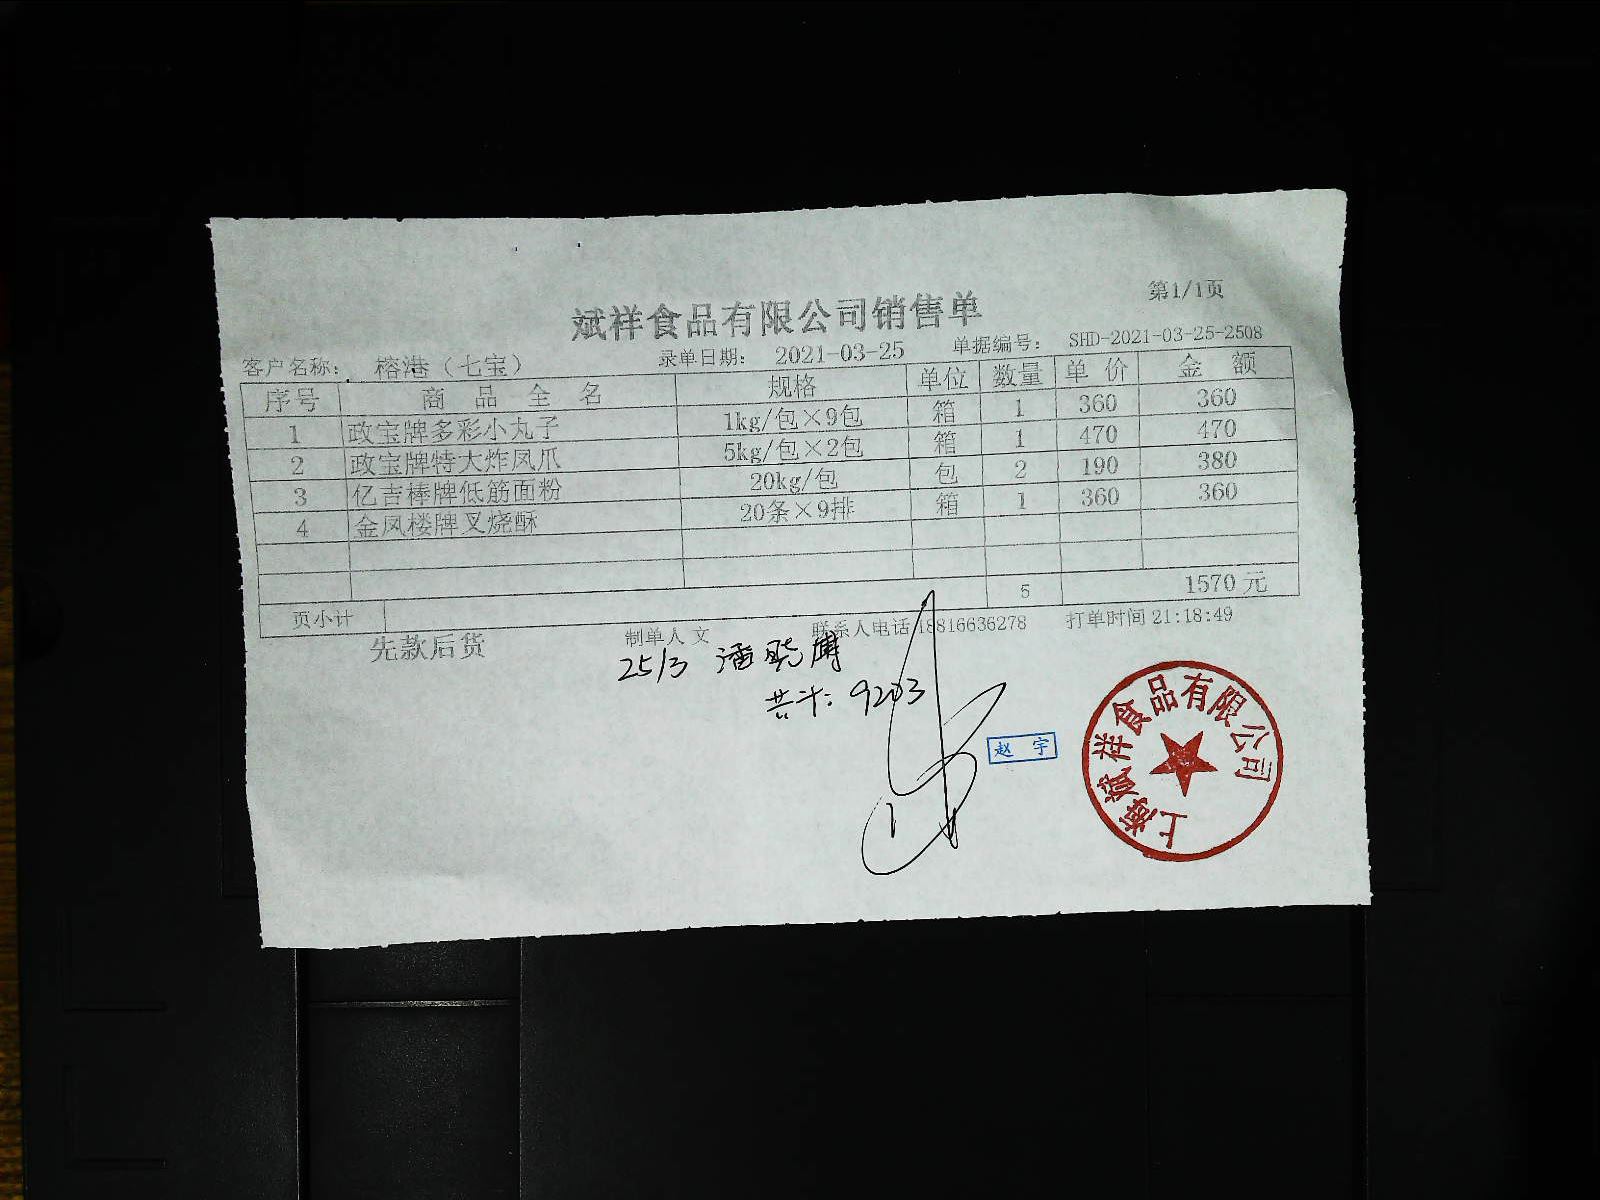 第1/1页
斌祥食品有限公司销售单
客户名称： 榕港（七宝） 录单日期： 2021-03-25 单据编号： SHD-2021-03-25-2508
序号 商 品 全 名 规格 单位 数量 单 价 金 额
1 政宝牌多彩小丸子 1kg/包×9包 箱 1 360 360
2 政宝牌特大炸凤爪 5kg/包×2包 箱 1 470 470
3 亿吉棒牌低筋面粉 20kg/包 包 2 190 380
4 金凤楼牌叉烧酥 20条×9排 箱 1 360 360
页小计 5 1570 元
先款后货 制单人 文 联系人电话 18816636278 打单时间 21:18:49
25/3 潘
共计：9203
赵 宇
上海斌祥食品有限公司